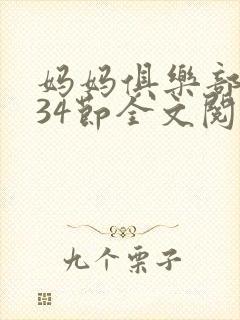 妈妈俱樂部
34節全文閱
九个栗子